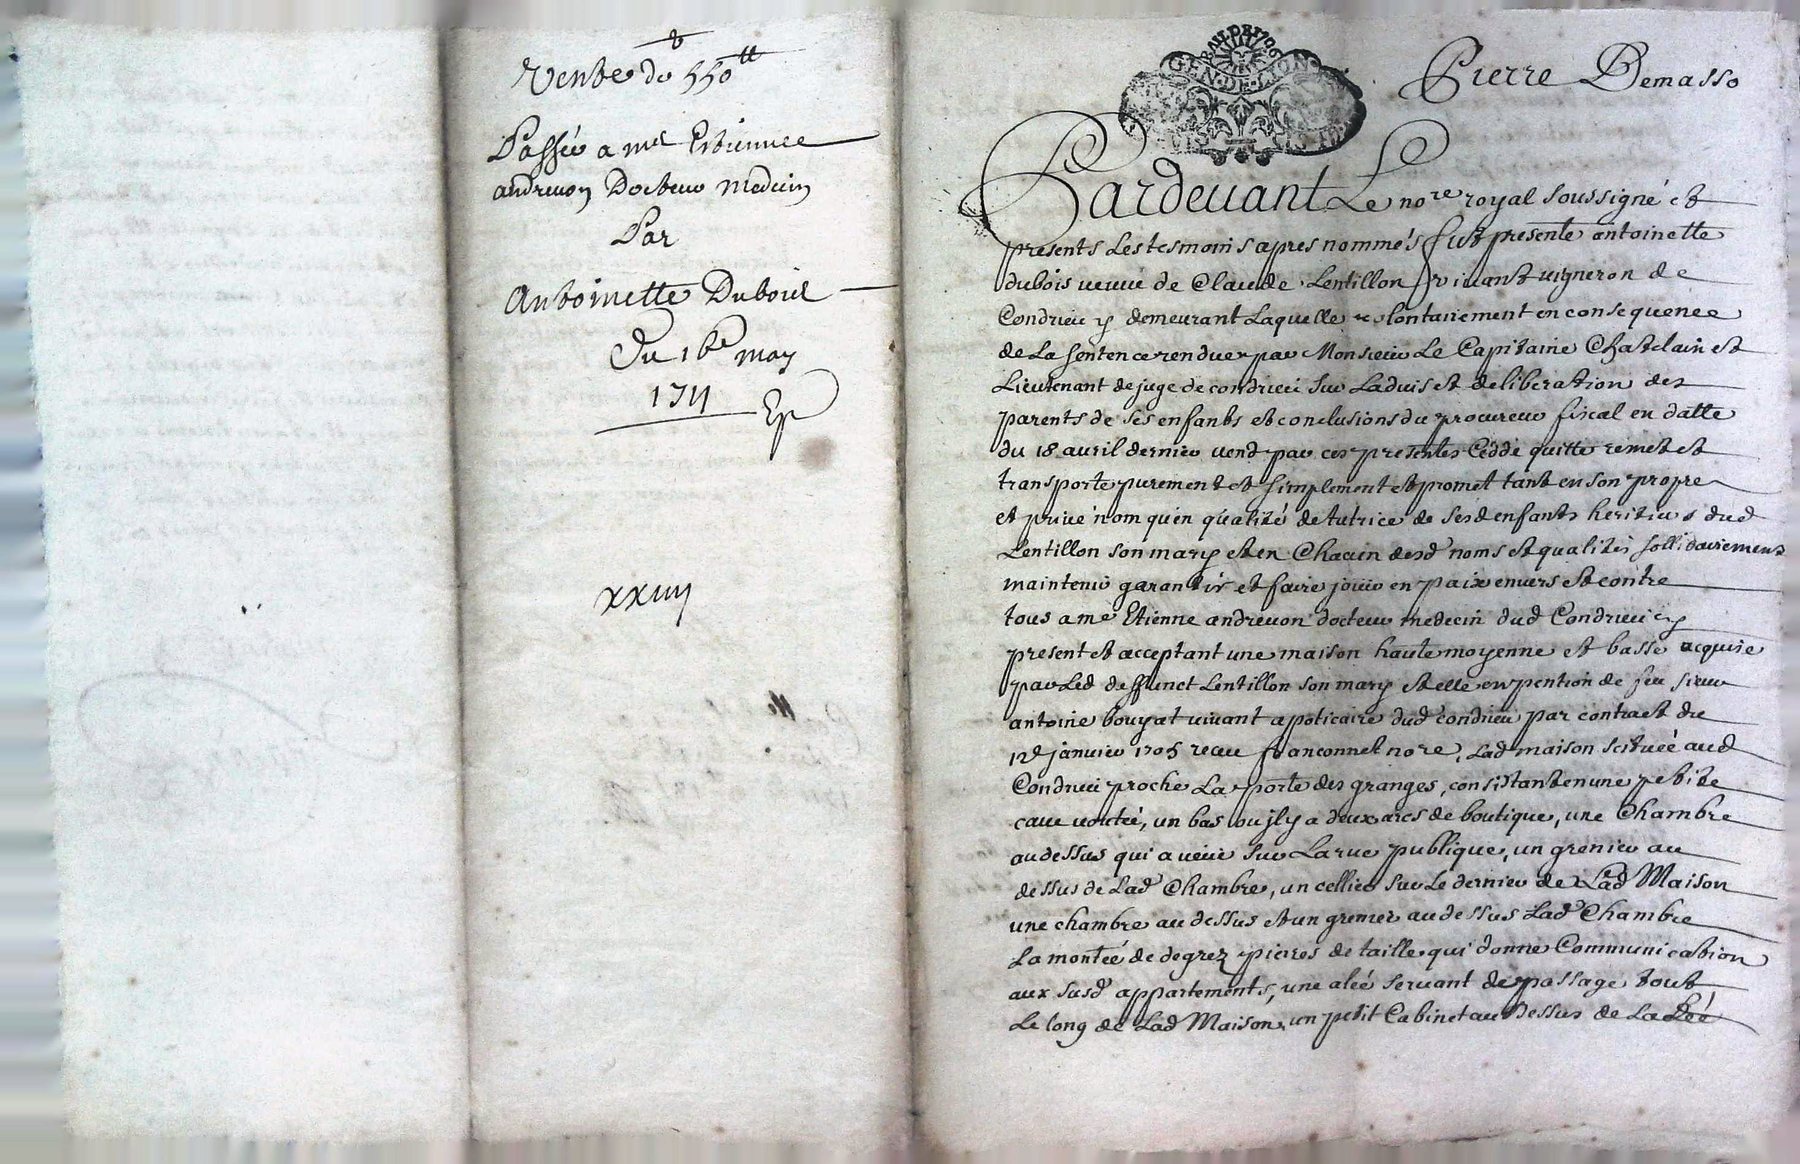 Vente de 550ᵗᵗ
Passée a mᵉ Estienne
andreuon Docteur medecin
Par
Antoinette Dubois
Du 16ᵉ may
1711
xxiiij
GEN·DE·LION
Pierre Demasso
Pardeuant Le noʳᵉ royal soussigné et
presents Les tesmoins apres nommés fut presente antoinette
dubois veuue de Claude Lentillon viuant vigneron de
Condrieu y demeurant Laquelle volontairement en consequence
de La sentence rendue par Monsieur Le Capitaine Chastelain et
Lieutenant de juge de condrieu sur Laduis et deliberation des
parents de ses enfants et conclusions du procureur fiscal en datte
du 18 auril dernier vend par ces presentes Cedde quitte remet et
transporte purement et simplement et promettant en son propre
et priué nom qu'en qualité de tutrice de sesd enfants heritiers dud
Lentillon son mary et en Chacun desd noms et qualités sollidairement
maintenir garantir et faire jouir en paix enuers et contre
tous a mᵉ Etienne andreuon docteur medecin dud Condrieu cy
present et acceptant une maison haute moyenne et basse acquise
par Led deffunct Lentillon son mary et elle en pention de feu sieur
antoine bouyat viuant apoticaire dud condrieu par contract du
12ᵉ januier 1705 receu franconnet noʳᵉ, Lad maison scituée aud
Condrieu proche La porte des granges, consistant en une petite
caue voutée, un bas ou jl y a deux arcs de boutique, une Chambre
au dessus qui a veue sur La rue publique, un grenier au
dessus de Lad Chambre, un cellier sur Le dernier de Lad Maison
une chambre au dessus et un grenier au dessus Lad Chambre
La montée de degrez pierres de taille qui donne Communication
aux susd appartements, une alée seruant de passage tout
Le long de Lad Maison, un petit Cabinet au Dessus de Lad